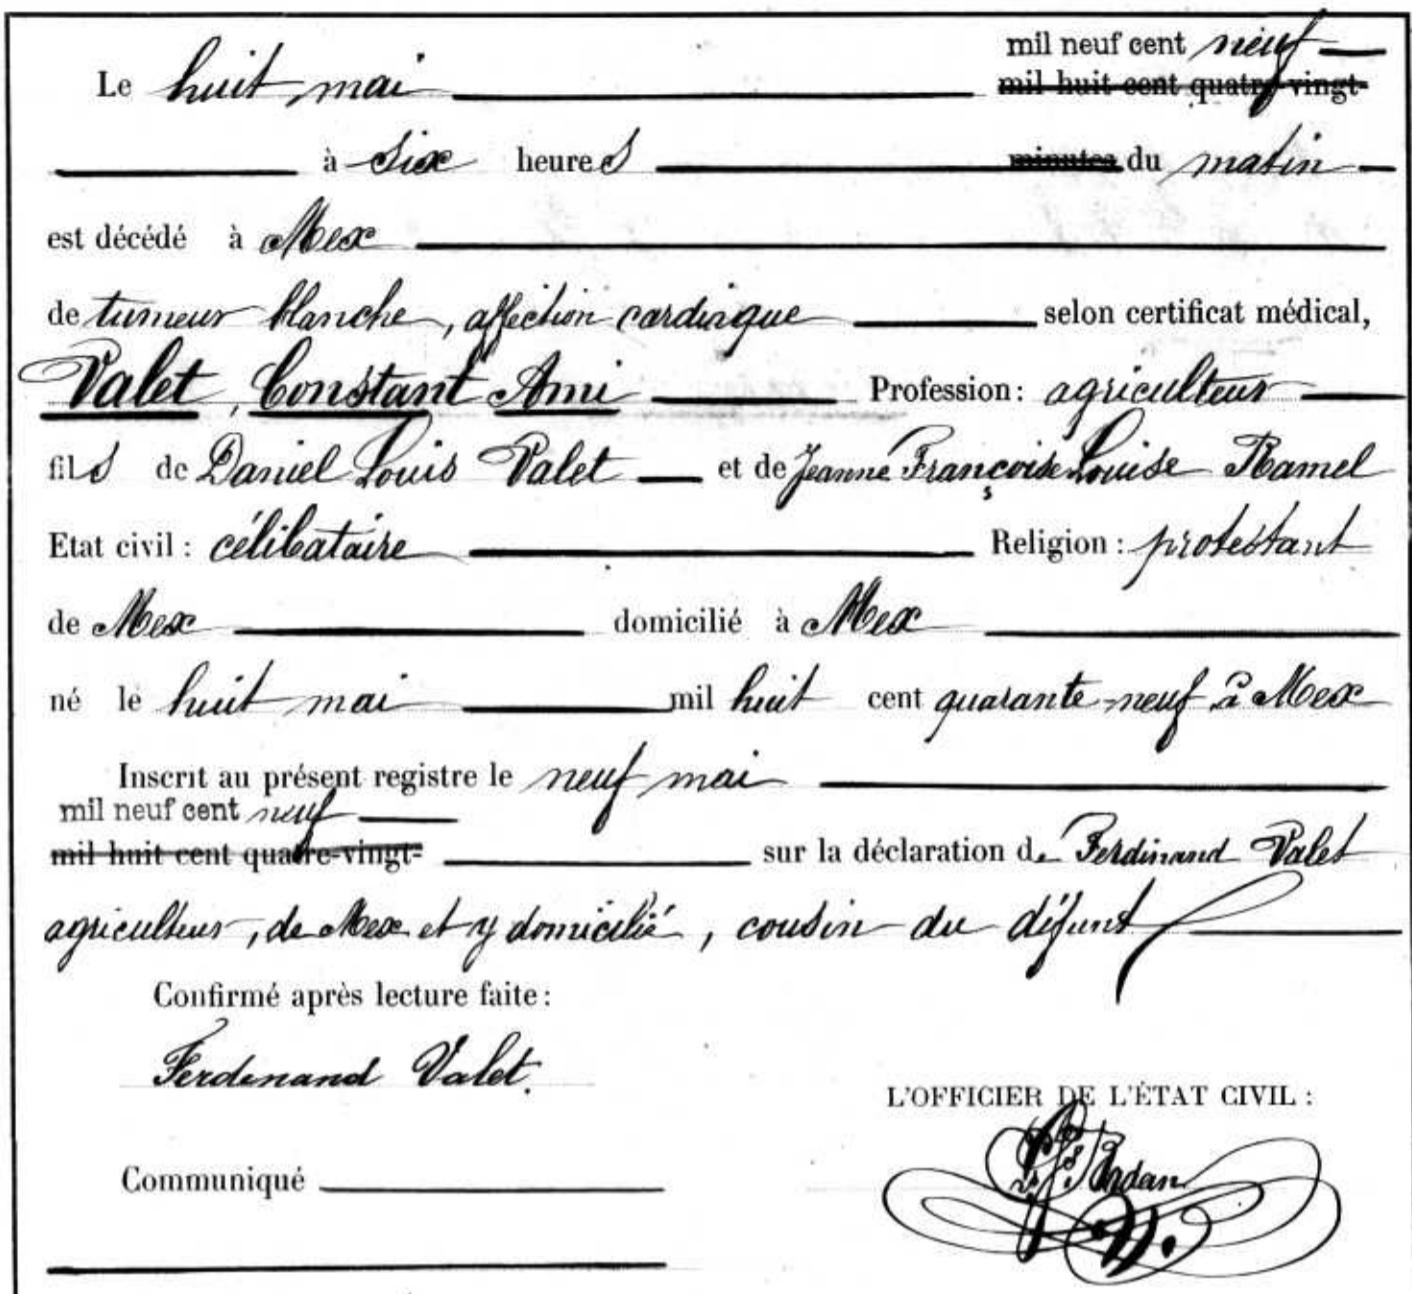 mil neuf cent neuf
Le huit mai mil huit cent quatre-vingt-
à six heures minutes du matin
est décédé à Mex
de tumeur blanche, affection cardiaque selon certificat médical,
Valet, Constant Ami Profession: agriculteur
fils de Daniel Louis Valet et de Jeanne Françoise Louise Ramel
Etat civil: célibataire Religion: protestant
de Mex domicilié à Mex
né le huit mai mil huit cent quarante neuf à Mex
Inscrit au présent registre le neuf mai
mil neuf cent neuf
mil huit cent quatre-vingt- sur la déclaration de Ferdinand Valet
agriculteur, de Mex et y domicilié, cousin du défunt
Confirmé après lecture faite:
Ferdinand Valet.
L'OFFICIER DE L'ÉTAT CIVIL:
Communiqué